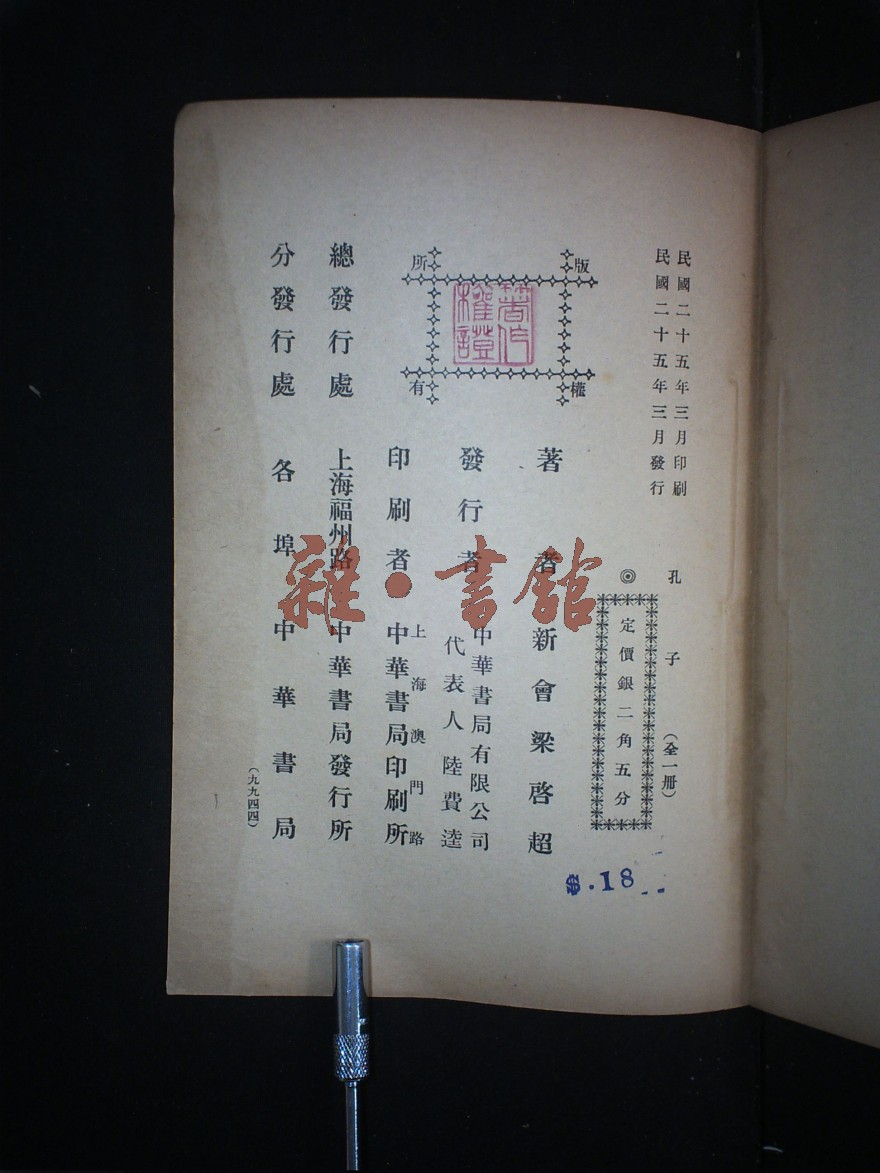 民國二十五年三月印刷
民國二十五年三月發行
孔子（全一冊）
◎
定價銀二角五分
版權所有
著作權證
著者 新會梁啓超
發行者 中華書局有限公司
代表人 陸費逵
印刷者 上海澳門路
中華書局印刷所
總發行處 上海福州路 中華書局發行所
分發行處 各埠中華書局
（九九四四）
$.18
雜·書館